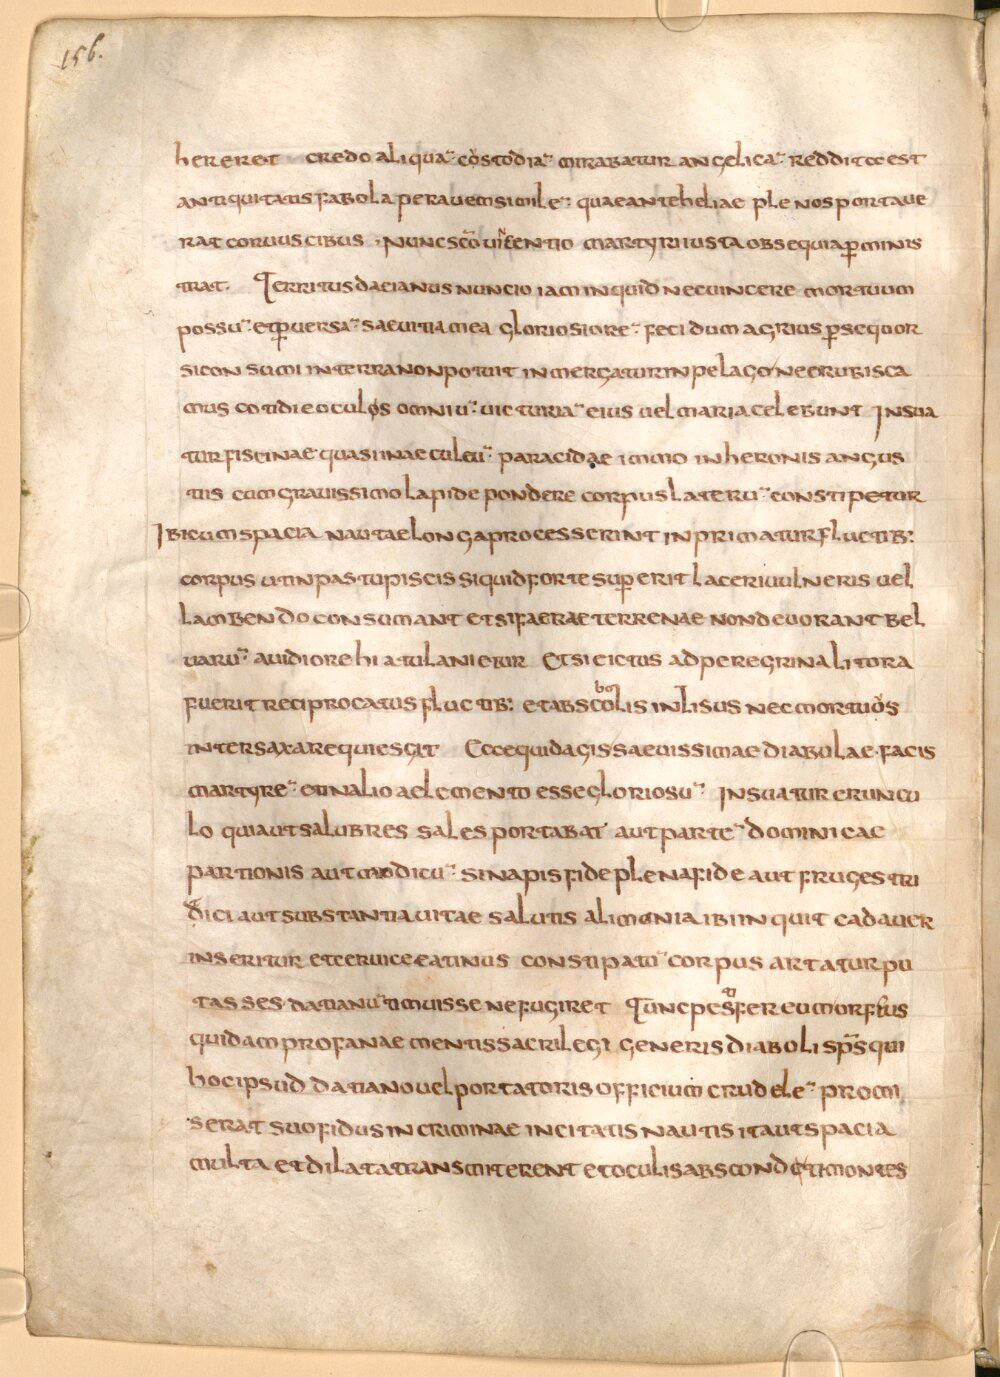 156.
hereret credo aliqua¨ costodia¨ mirabatur angelica¨ redditoest
antiquitatis fabola per auem simile¨ quae ante heliae plenos portaue
rat coruus cibus · Nunc sco uincentio martyri iusta obsequia pminis
trat. Territus dacianus nuncio iam inquid nec uincere mortuum
possu¨ et puersa¨ saeuitia mea gloriosiore¨ feci dum agrius psequor
si consumi in terra non potuit inmergatur in pelago ne erubisca
mus cotidie oculos omniu¨ uicturia¨ eius uel maria celebunt Insua
tur fiscinae quasi in aeculeu¨ paracidae immo inheronis angus
tiis cum grauissimo lapide pondere corpus lateru¨ constipetur
Ibi cum spacia nautae longa processerint inprimatur fluctib:
corpus ut in pastu piscis siquid forte superit laceri uulneris uel
lambendo consumant et si faerae terrenae non deuorant bel
uaru¨ auidiore hiatu lanietur Et si eictus ad peregrina litora
fuerit reciprocatus fluctib: et ab scobolis inlisus nec mortuos
inter saxa requiescit Ecce quid agis saeuissimae diabulae · facis
martyre¨ et in alio aelemento esse gloriosu¨ Insuatur eruncu
lo qui aut salubres sales portabat aut parte¨ dominicae
partionis aut moditu¨ sinapis fide plena fide aut fruges tri
dici aut substantia uitae salutis alimonia ibi inquit cadauer
inseritur et ceruice eatinus constipatu¨ corpus artatur pu
tasses datianu¨ timuisse ne fugiret Tunc pestifer eumorfius
quidam profanae mentis sacrilegi generis diaboli sps qui
hoc ipsud datiano uel portatoris officium crudele¨ promi
serat suo fidus in criminae incitatis nautis ita ut spacia
multa et dilata transmiterent et oculis abscondeti montes